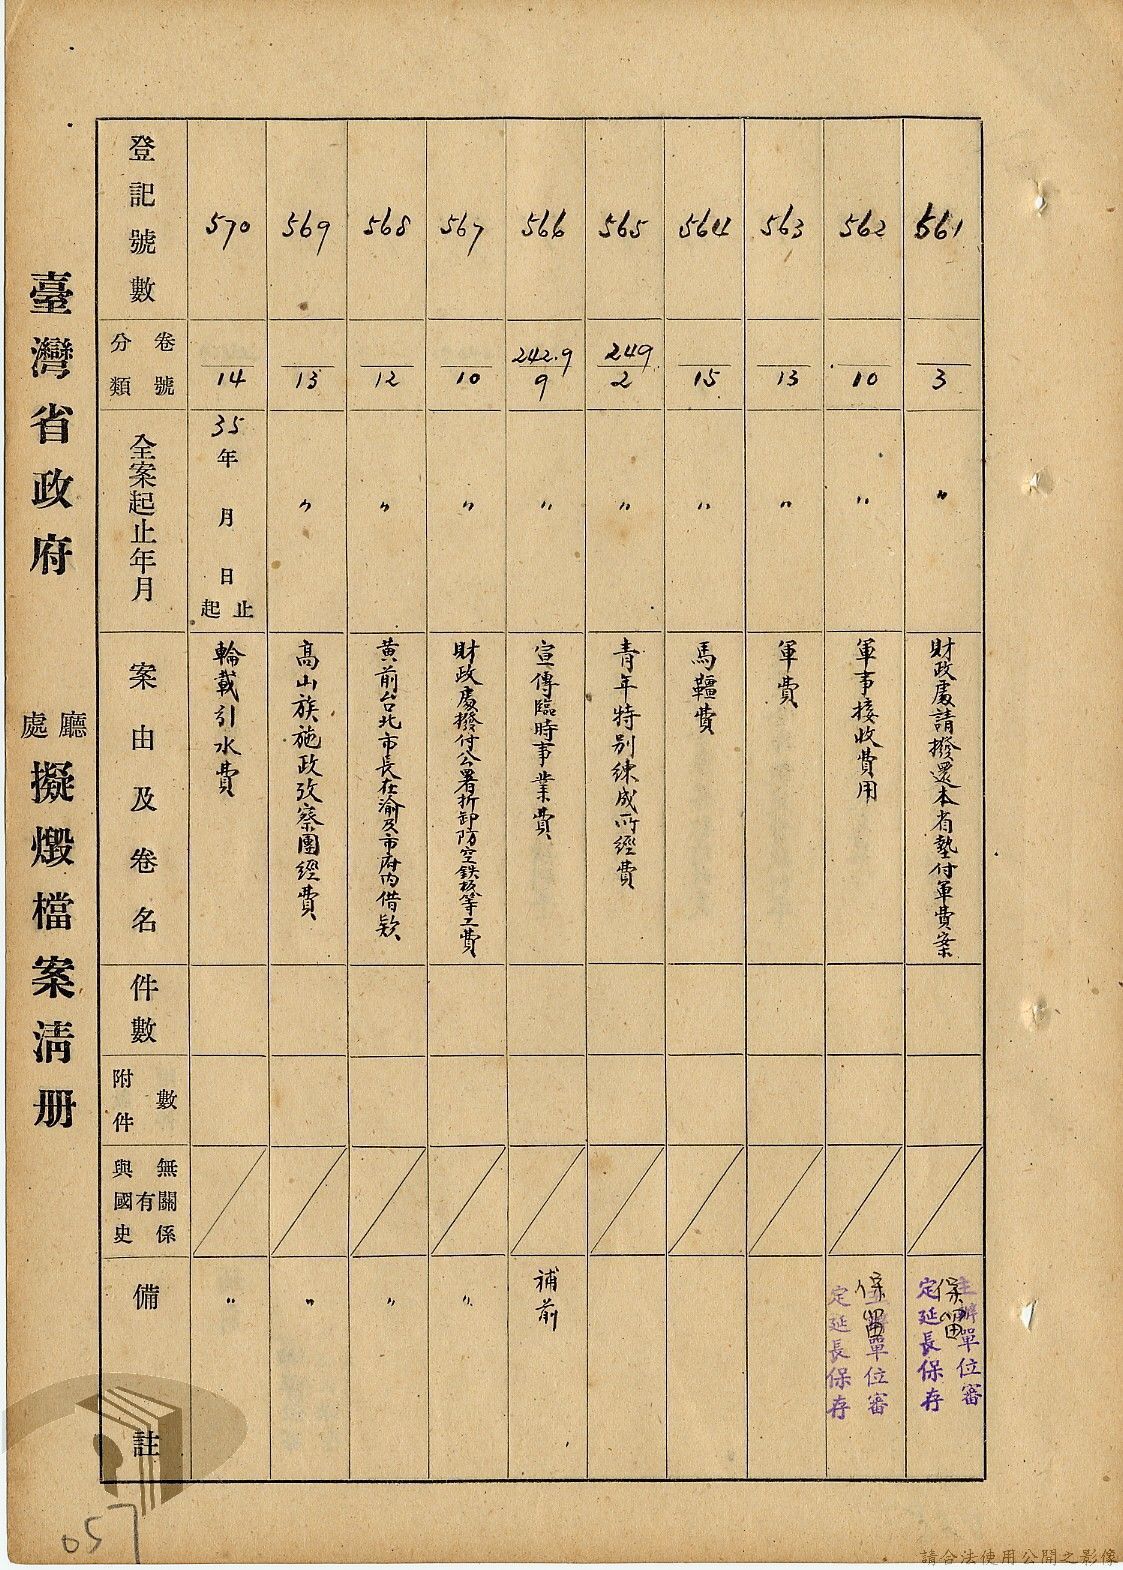 臺灣省政府 廳處 擬燬檔案清册
登記號數
分類 卷號
全案起止年月
案由及卷名
件數
附件數
與國史有無關係
備註
570
14
35年 月 日 起止
輪載引水費
〃
569
13
〃
高山族施政攷察團經費
〃
568
12
〃
黃前台北市長在渝及市府內借款
〃
567
10
〃
財政處撥付公署折卸防空鉄板等工費
〃
566
242.9
9
〃
宣傳臨時事業費
補前
565
249
2
〃
青年特別練成所經費
564
15
〃
馬韁費
563
13
〃
軍費
562
10
〃
軍事接收費用
保留
主辦單位審
定延長保存
561
3
〃
財政處請撥還本省墊付軍費案
保留
主辦單位審
定延長保存
057
請合法使用公開之影像